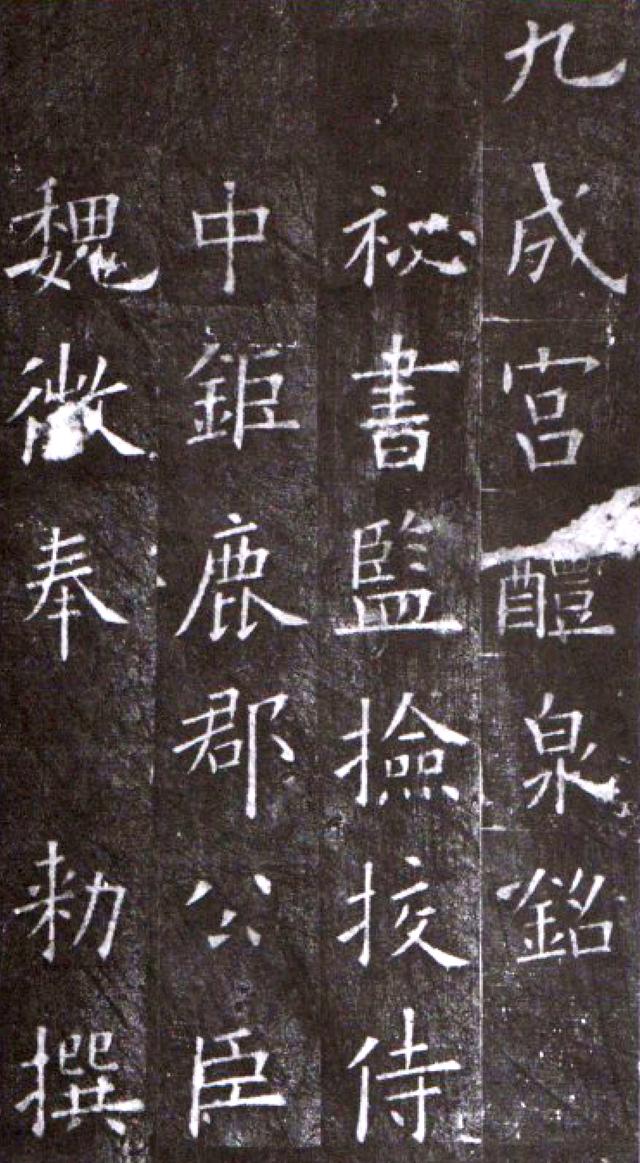 九成宮醴泉銘
祕書監撿挍侍
中鉅鹿郡公臣
魏徵奉勑撰